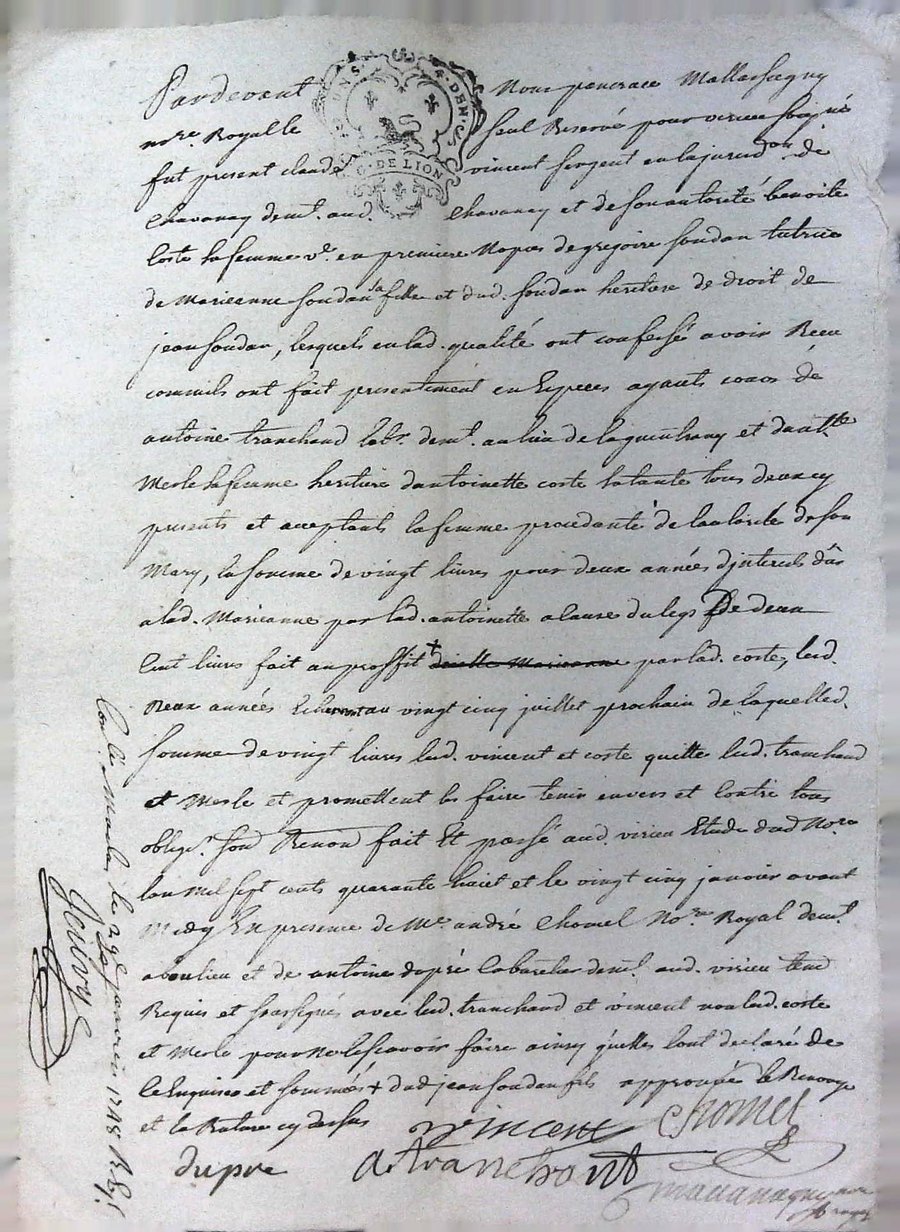 Pardevant Nous pancrace Mallassagny
nore. Royal le seul Reservé pour virieu soigné
fut present claude vincent sergent en la jurisdon. de
Chavanay demt. aud. Chavanay et de son autorité benoite
Coste sa femme ve. en premiere Nopce de gregoire soudan tutrice
de Marieanne soudan sa fille et dud. soudan heritiere de droit de
jean soudan, lesquels en lad. qualité ont confessé avoir Receu
comm'ils ont fait presentement en Especes ayants cours de
antoine tranchand labr. demt. au lieu de et dantte
Merle sa femme heritiere dantoinette coste sa tante tous deux cy
presents et acceptants la femme procedante de lautorité de son
Mary, la somme de vingt livres pour deux années d'jnterests dûs
a lad. Marieanne par lad. antoinette a cause du legs de deux
Cent livres fait au proffit + par lad. coste, lesd.
Deux années au vingt cinq juillet prochain de laquelle d.
somme de vingt livres lesd. vincent et coste quitte lesd. tranchand
et Merle et promettent les faire tenir envers et contre tous
obligt. soud Renon fait Et passé aud. virieu Etude dud Nore
lan Mil sept cents quarante huict et le vingt cinq janvier avant
Midy En presence de Me. andré Chomel Nore Royal demt.
a boulieu et de antoine dupré Cabaretier demt. aud. virieu tem
Requis et soussignés avec led. tranchand et vincent non lad. coste
et Merle pour ne le scavoir faire ainsy qu'elles lont declaré de
ce Enquises et sommés + dud jean soudan fils approuvée le Renvoye
et la Rature cy dessus
vincent Chomel
dupre A tranchant
mallassagny nore
royal
Con.lé a le 29e. janvier 1748 R